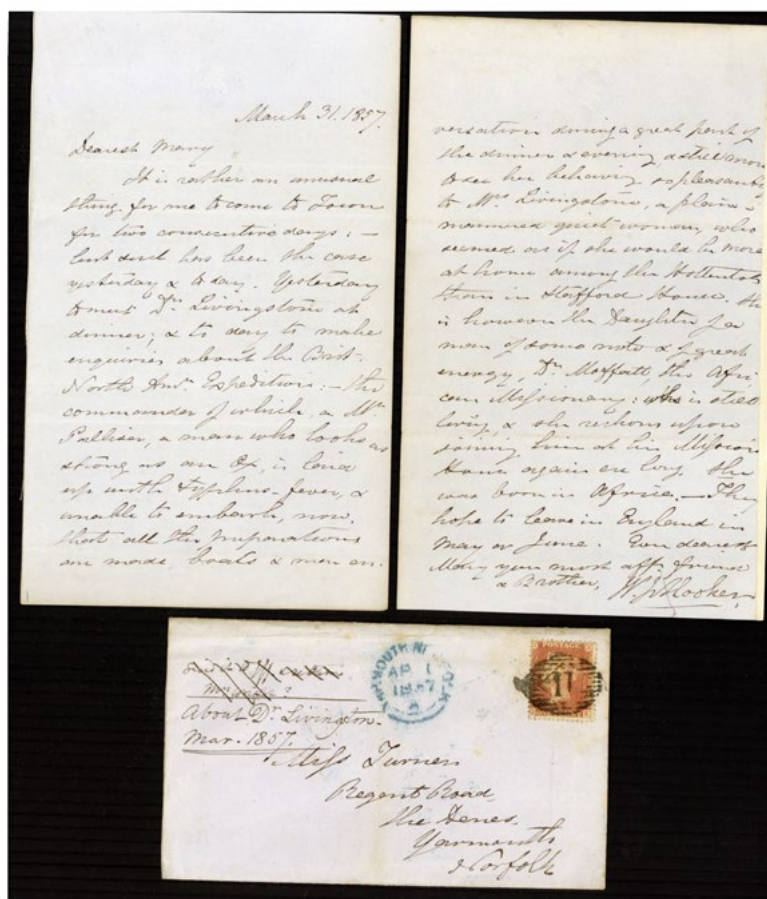 March 31. 1857.
Dearest Mary
It is rather an unusual
thing for me to come to Town
for two consecutive days: –
but such has been the case
yesterday & to day. Yesterday
to meet Dr. Livingstone at
dinner; & to day to make
enquiries about the Brit.
North Amn. Expedition: – the
commander of which, a Mr.
Palliser, a man who looks as
strong as an Ox, is laid
up with typhus-fever, &
unable to embark, now,
that all the preparations
are made, boats & men en-
versation during a great part of
the dinner & evening & still more
to see her behaving so pleasantly
to Mrs. Livingstone, a plain
mannered quiet woman, who
seemed as if she would be more
at home among the Hottentots
than in Stafford House. She
is however the Daughter of a
man of some note & of great
energy, Dr. Moffatt, the Afri
can Missionary: who is still
living, & she reckons upon
joining him at his Mission
Home again ere long. She
was born in Africa. – They
hope to leave in England in
May or June. Ever dearest
Mary your most afft. friend
& Brother, W. J. Hooker.
About Dr. Livingston.
Mar. 1857.
Miss Turner
Regent Road
The Denes.
Yarmouth
Norfolk
YARMOUTH NORFOLK
AP 1
1857
POSTAGE